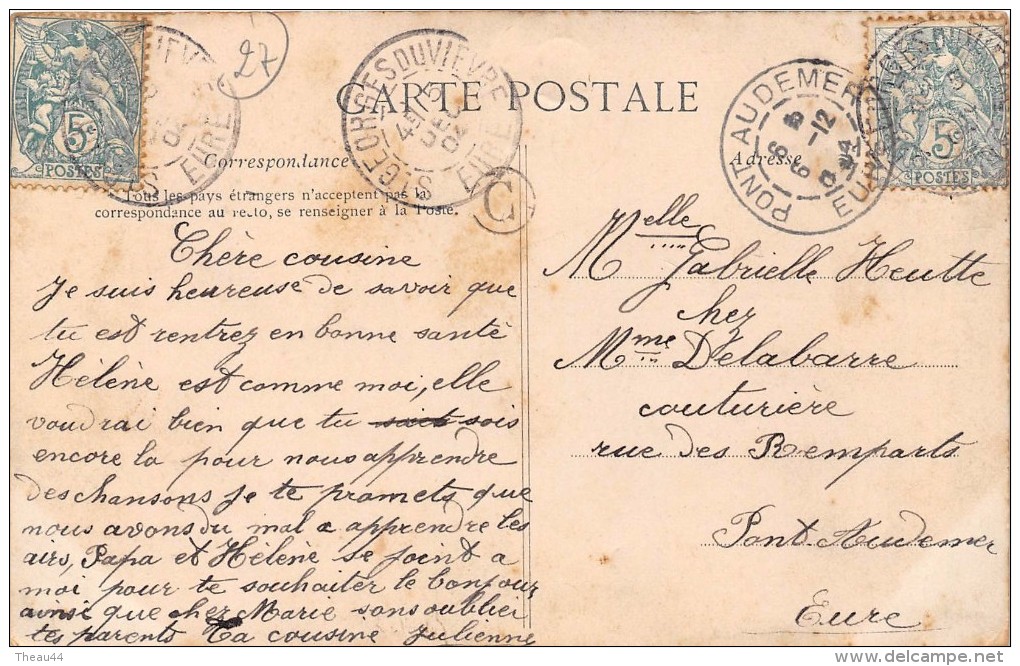 27
5c
POSTES
5c
POSTES
ST GEORGES DU VIEVRE
EURE
PONT AUDEMER
EURE
CARTE POSTALE
Correspondance
Tous les pays étrangers n'acceptent pas la
correspondance au recto, se renseigner à la Poste.
C
Chère cousine
Je suis heureuse de savoir que
tu est rentrez en bonne santé
Hélène est comme moi, elle
voudrai bien que tu soit sois
encore la pour nous apprendre
des chansons je te promets que
nous avons du mal a apprendre les
airs, Papa et Hélène se joint a
moi pour te souhaiter le bonjour
ainsi que cher Marie sans oublier
tes parents Ta cousine Julienne
Adresse
Melle Gabrielle Heutte
chez
Mme Delabarre
couturière
rue des Remparts
Pont Audemer
Eure
Theau44
www.delcampe.net